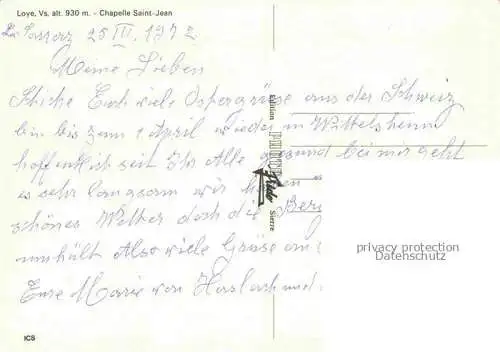 Loye, Vs. alt. 930 m. - Chapelle Saint-Jean
25 III. 1972
Meine Lieben
Schicke Euch viele Ostergrüsse aus der Schweiz
bin bis zum 1 April wieder in Wittelsheim
hoffentl ist seit Ihr Alle gesund bei mir geht
es sehr langsam wir haben
schönes Wetter doch die Berg
umhült Also viele Grüse an
Eure Marie von Haslach und
Edition
Sierre
privacy protection
Datenschutz
ICS